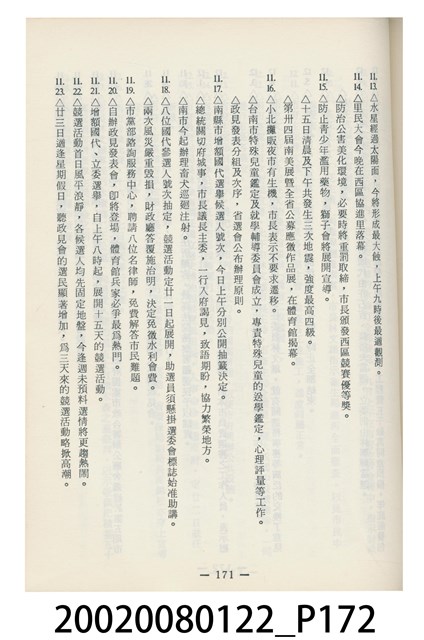 11.13.△水星經過太陽面,今將形成最大蝕,上午九時後最適觀測。
11.14.△里民大會今晚在西區協進里落幕。
△防治公害美化環境,必要時將重罰取締,市長頒發西區競賽優等獎。
11.15.△防止青少年濫用藥物,獅子會將展開宣導。
△十五日清晨及下午共發生三次地震,強度最高四級。
△第卅四屆南美展暨全省公募應徵作品展,在體育館揭幕。
11.16.△小北攤販夜市有生機,市長表示不要求遷移。
△台南市特殊兒童鑑定及就學輔導委員會成立,專責特殊兒童的送學鑑定,心理評量等工作。
△政見發表分組及次序,省選會公布辦理原則。
11.17.△南縣市增額國代選舉候選人號次,今日上午分別公開抽籤決定。
△總統關切府城事,市長議長主委,一行入府謁見,致語期盼,協力繁榮地方。
△南市今起辦理畜犬巡廻注射。
11.18.△八位國代參選人號次抽定,競選活動定廿一日起展開,助選員須懸掛選委會標誌始准助講。
△兩次風災嚴重毀損,財政廳答覆施治明,決定免徵水利會費。
11.19.△市黨部諮詢服務中心,聘請八位名律師,免費解答市民難題。
11.20.△自辦政見發表會,卽將登場,體育館兵家必爭最爲熱門。
11.21.△增額國代、立委選舉,自上午八時起,展開十五天的競選活動。
11.22.△競選活動首日風平浪靜,各候選人均先固定地盤,今逢週末預料選情將更趨熱鬧。
11.23.△廿三日適逢星期假日,聽政見會的選民顯著增加,爲三天來的競選活動略掀高潮。
— 171 —
20020080122_P172